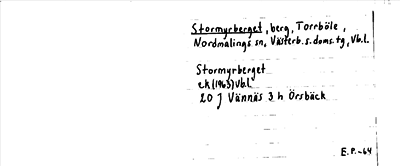 Stormyrberget, berg, Torrböle,
Nordmalings sn, Västerb.s.doms.tg, Vb.l.
Stormyrberget
ek (1963) Vb.l.
20 J Vännäs 3 h Örsbäck
E.P.-64